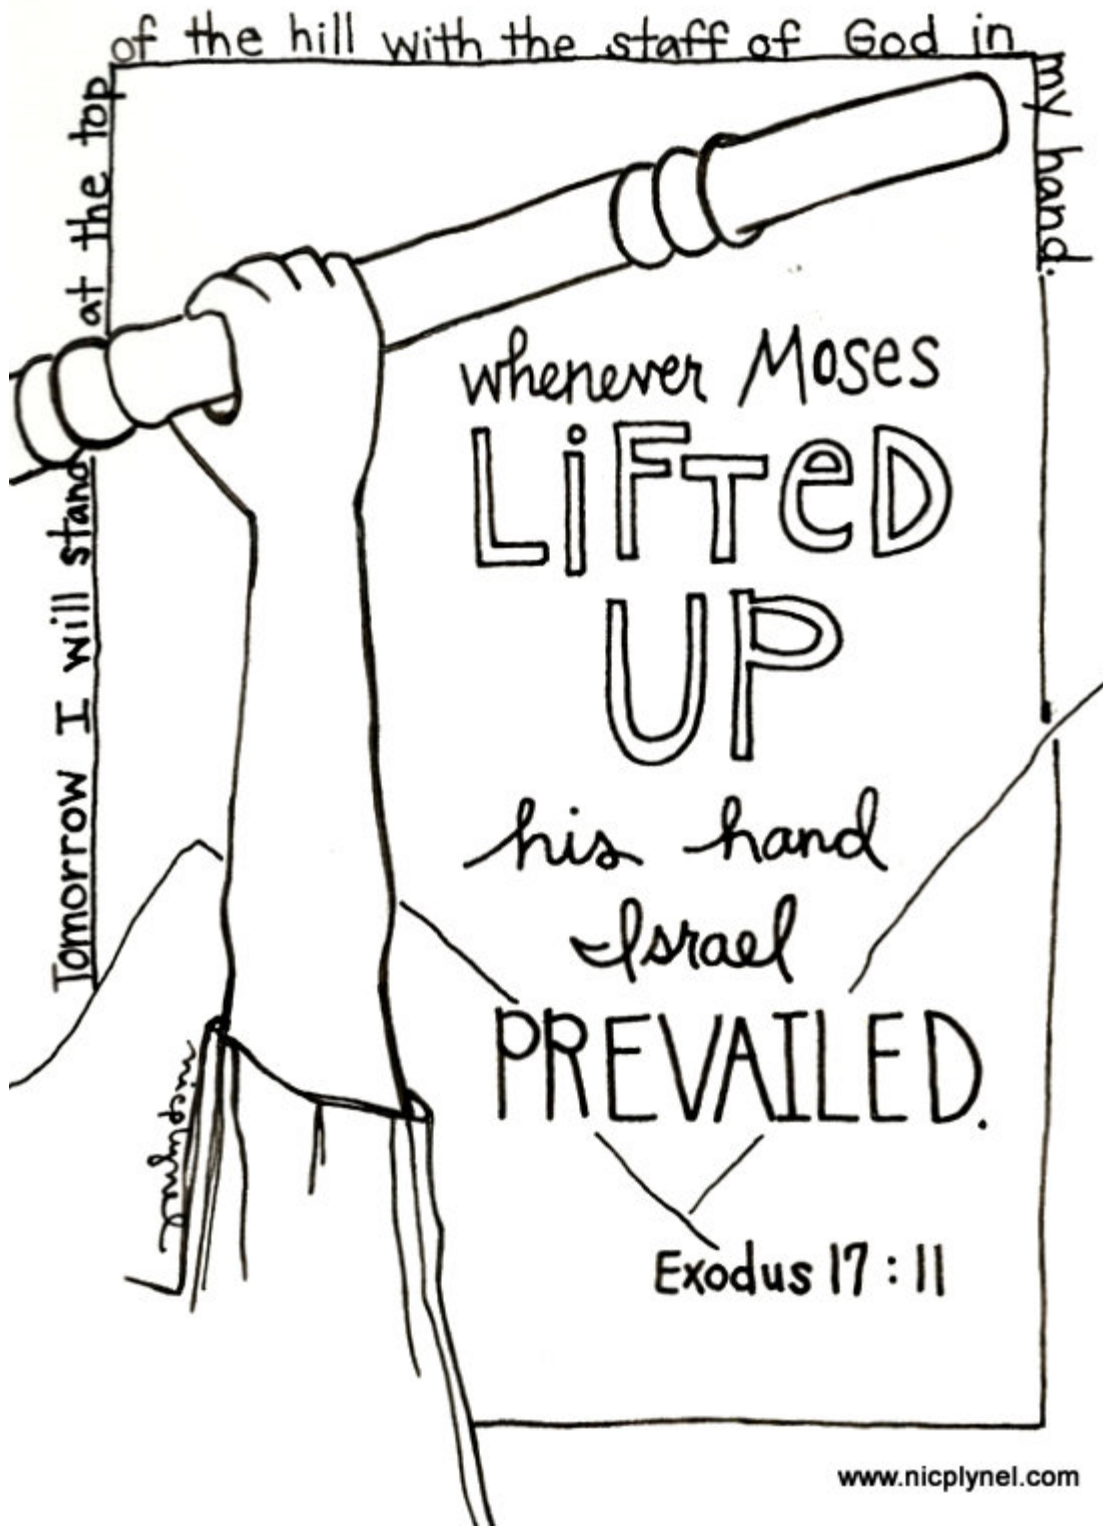 Tomorrow I will stand at the top
of the hill with the staff of God in
my hand.
whenever Moses
LiFTeD
UP
his hand
Israel
PREVAILED.
Exodus 17:11
nicplynel
www.nicplynel.com